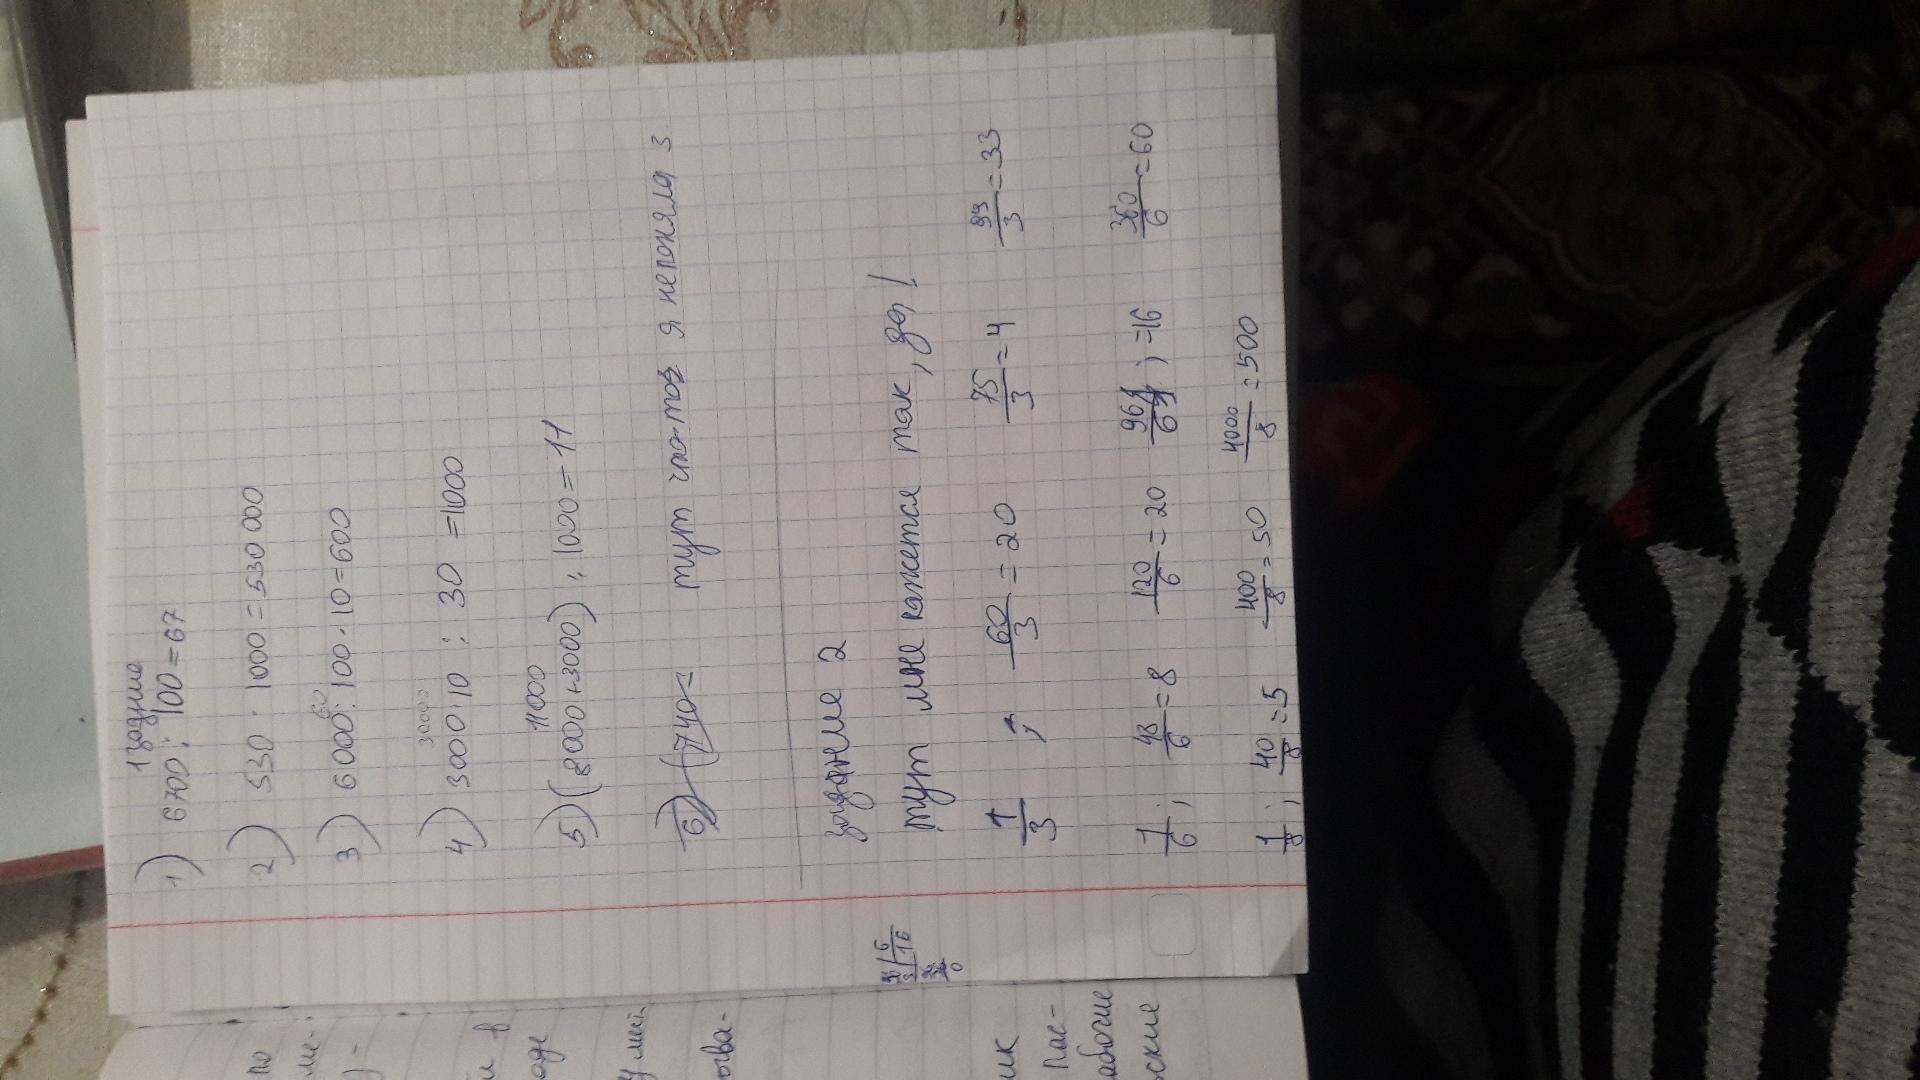 1 задние
1) 6700 : 100 = 67
2) 530 · 1000 = 530 000
60
3) 6000 : 100 · 10 = 600
30000
4) 3000 · 10 : 30 = 1000
11000
5) (8000 + 3000) : 1000 = 11
6) (740 = тут что-то я непоняла з
задание 2
тут мне кажется так, да!
1/3 ; 60/3 = 20 75/3 = 4 99/3 = 33
1/6 ; 48/6 = 8 120/6 = 20 96/6 ; = 16 360/6 = 60
1/8 ; 40/8 = 5 400/8 = 50 4000/8 = 500
6
16
0
по
ме-
у-
и в
оде
умей
ыва-
ик
Пас-
абочие
ские